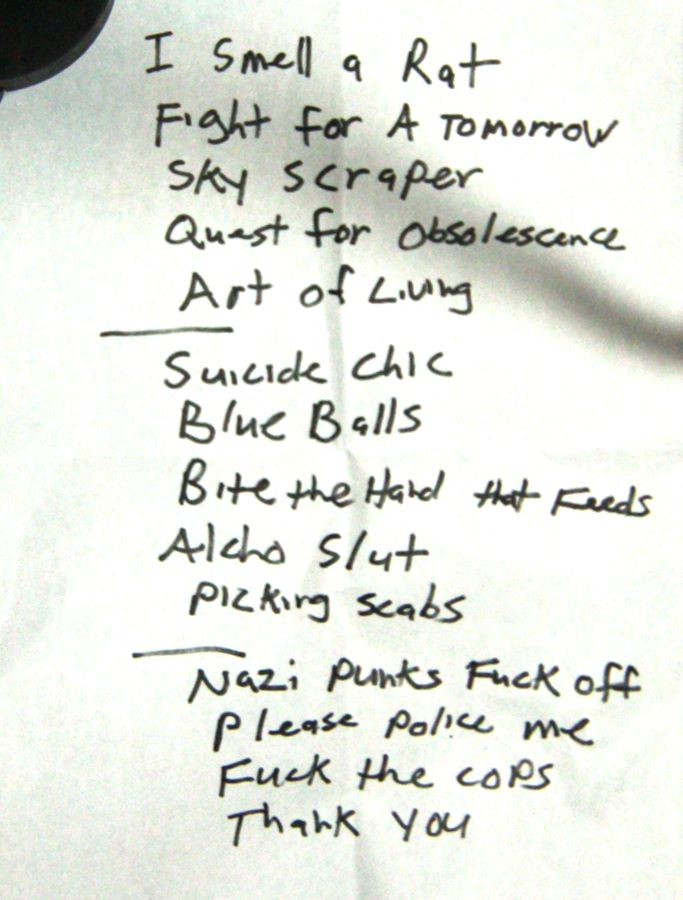 I Smell a Rat
Fight for A Tomorrow
Sky Scraper
Quest for Obsolescence
Art of Living
Suicide Chic
Blue Balls
Bite the Hand that Feeds
Alcho Slut
Picking scabs
Nazi Punks Fuck off
Please Police me
Fuck the cops
Thank You